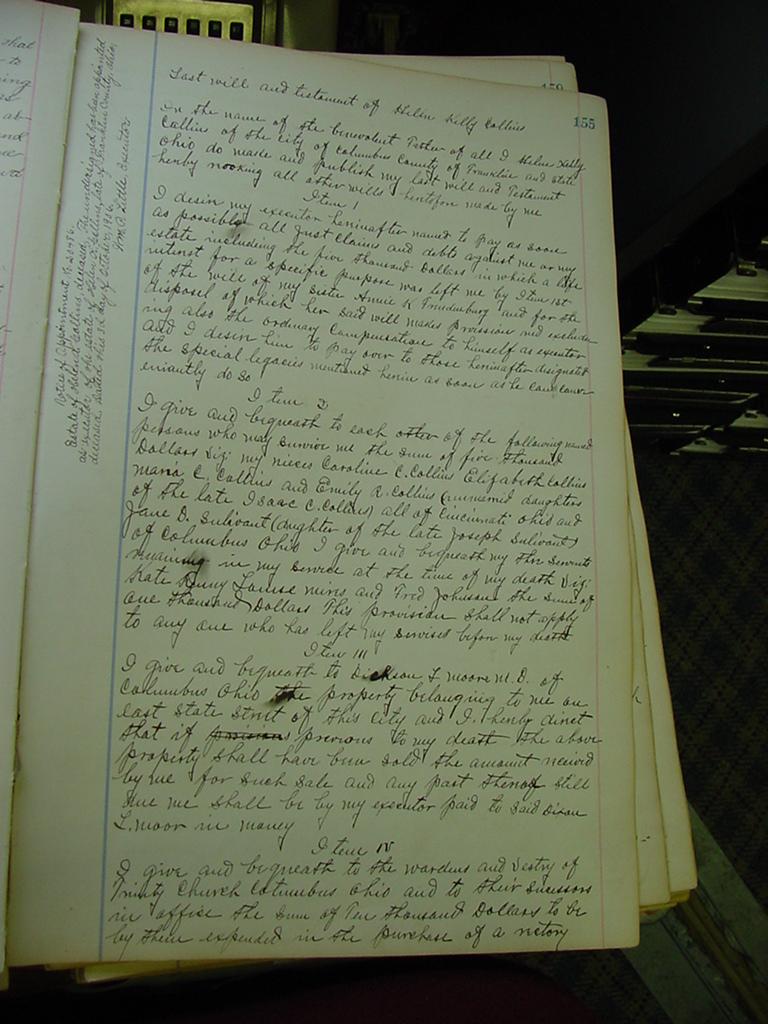 155
Last will and testament of Helen Kelly Collins
In the name of the benevolent Father of all I Helen Kelly
Collins of the City of Columbus County of Franklin and State
Ohio do make and publish my last will and Testament
herby revoking all other wills heretofore made by me
Item 1
I desire my executor hereinafter named to pay as soon
as possible all just claims and debts against me or my
estate including the five thousand Dollars in which a life
interest for a specific purpose was left me by Item 1st
of the will of my sister Annie K and for the
disposal of which her said will makes provission and exclud
ing also the ordinary Compensation to himself as executor
and I desire him to pay over to those hereinafter designated
the special legacies mentioned herein as soon as he can conv
eniantly do so
Item 2
I give and bequeath to each of the following named
persons who may survive me the sum of five thousand
Dollars Viz; my nieces Caroline C. Collins Elizabeth Collins
Maria C. Collins and Emily A. Collins (unmarried daughters
of the late Isaac C. Collins) all of Cincinnati Ohio and
Jane D. Sulivant (daughter of the late Joseph Sulivant)
of Columbus Ohio I give and bequeath my three servants
remaining in my service at the time of my death Viz;
Kate Louise Mires and Fred Johnson the sum of
one thousand Dollars This provision shall not apply
to any one who has left my servises before my death
Item III
I give and bequeath to Dickson L moore M.D. of
Columbus Ohio the property belonging to me on
east State Street of this city and I herby direct
that if previous to my death the above
property shall have been sold the amount received
by me for such sale and any part thereof still
due me shall be by my executor paid to said Dixon
L. moor in money
Item IV
I give and bequeath to the wardens and Vestry of
Trinity Church Columbus Ohio and to their successors
in office the sum of Ten thousand Dollars to be
by them expended in the purchase of a rectory
Notice of Appointment No.
Estate of Helen K Collins, deceased. The undersigned has been appointed
as executor of the estate of Helen K Collins late of Franklin County, Ohio,
deceased. dated this day of October,
Wm. P. Little Executor